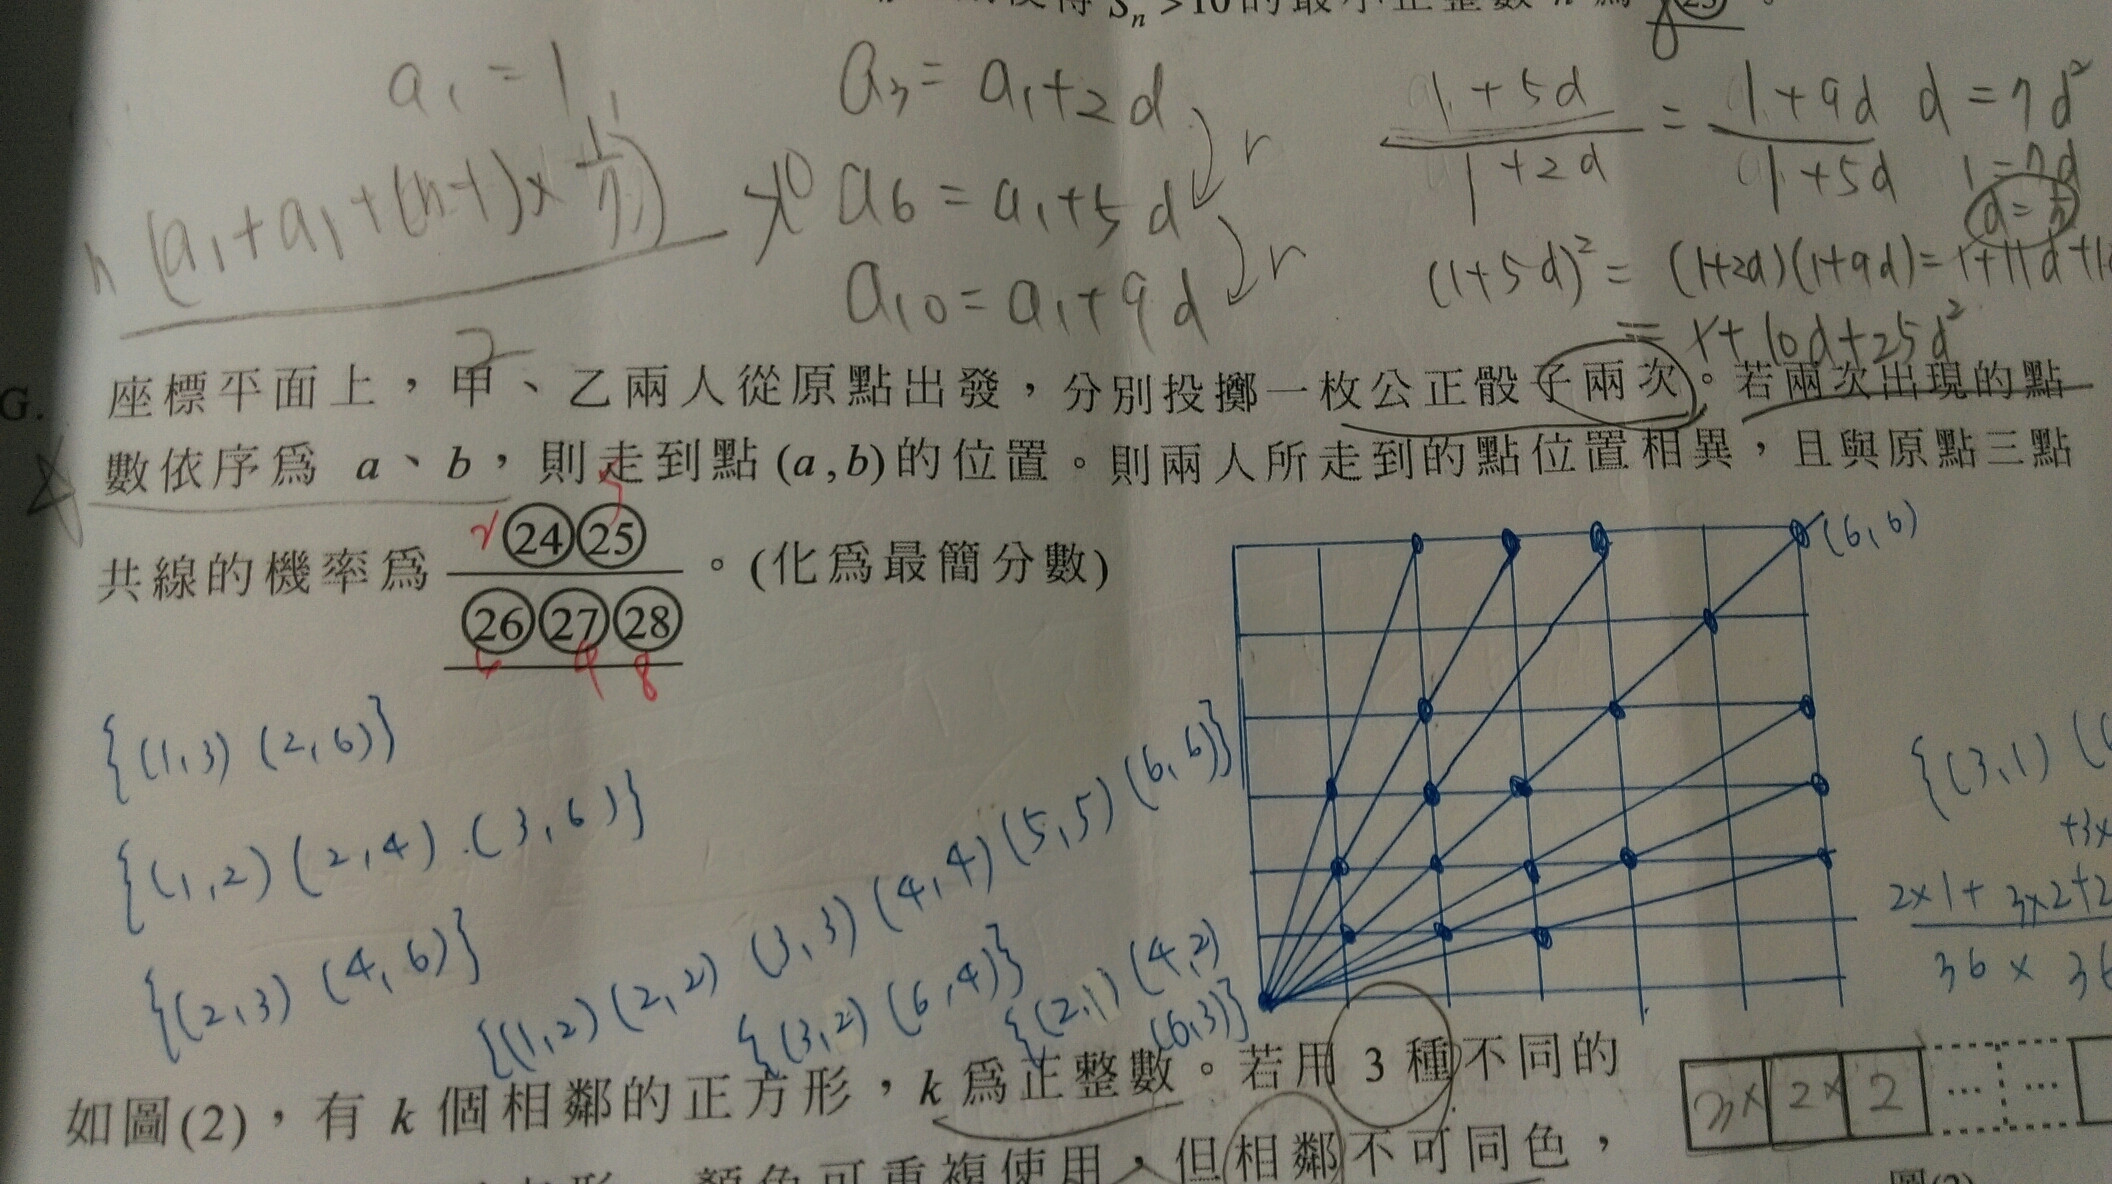 S_n >10的最小正整數 n 為 ㉕。
a₁ = 1
a₃ = a₁+2d
r
(1+5d)/(1+2d) = (1+9d)/(1+5d)
d = 7d²
1=7d
n(a₁+a₁+(n-1)×1/7)/2 >10
a6 = a₁+5d
r
a₁₀ = a₁+9d
(1+5d)² = (1+2d)(1+9d)=1+11d+
= 1+10d+25d²
G. 座標平面上，甲、乙兩人從原點出發，分別投擲一枚公正骰子兩次。若兩次出現的點
數依序為 a、b，則走到點(a,b)的位置。則兩人所走到的點位置相異，且與原點三點
共線的機率為 ㉔㉕/㉖㉗㉘。(化為最簡分數)
(6,6)
{(1,3) (2,6)}
{(1,2) (2,4) (3,6)}
{(2,3) (4,6)}
{(1,2) (2,2) (3,3) (4,4) (5,5) (6,6)}
{(3,2) (6,4)}
{(2,1) (4,2)
(6,3)}
{(3,1)
2×1+3×2+2
36×36
如圖(2)，有 k 個相鄰的正方形，k 為正整數。若用 3 種不同的
3× 2× 2 … …
顏色可重複使用，但相鄰不可同色，
圖(2)